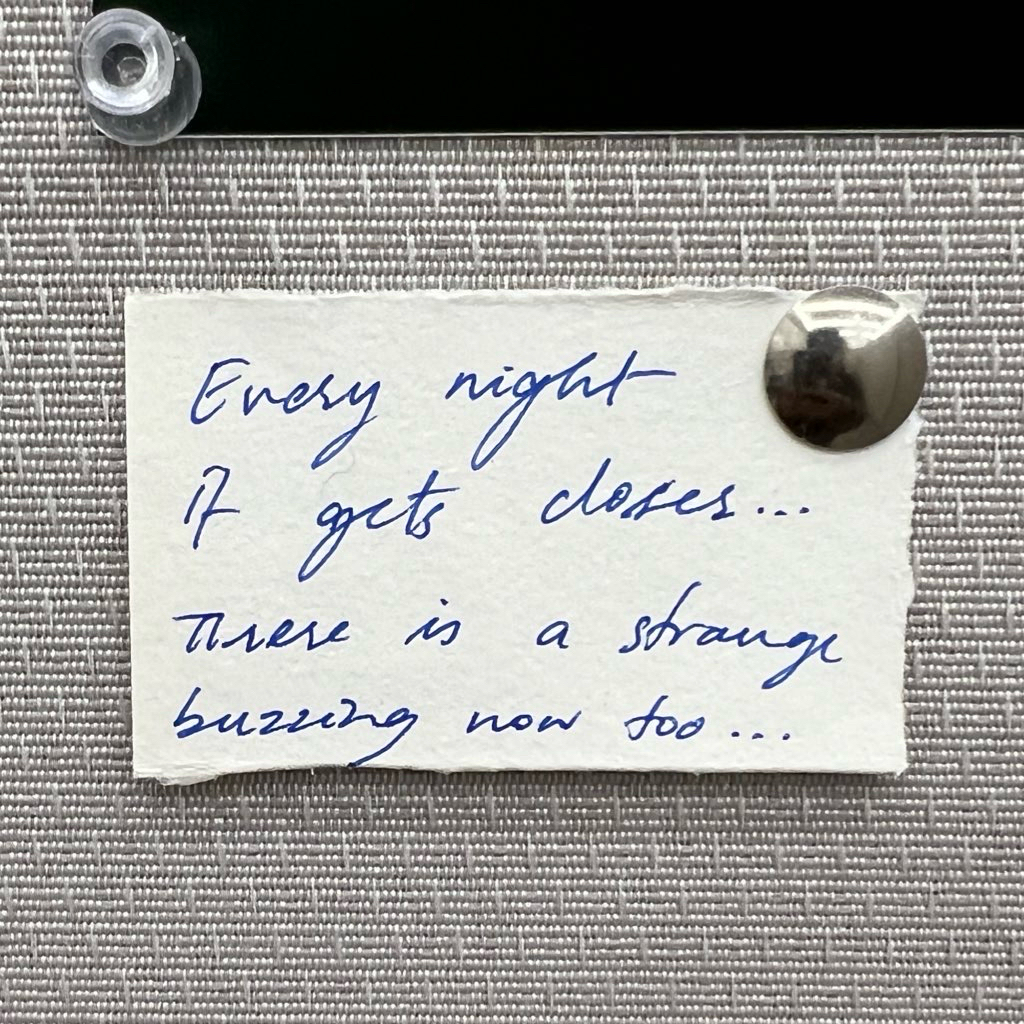 Every night
It gets closer...
There is a strange
buzzing now too...